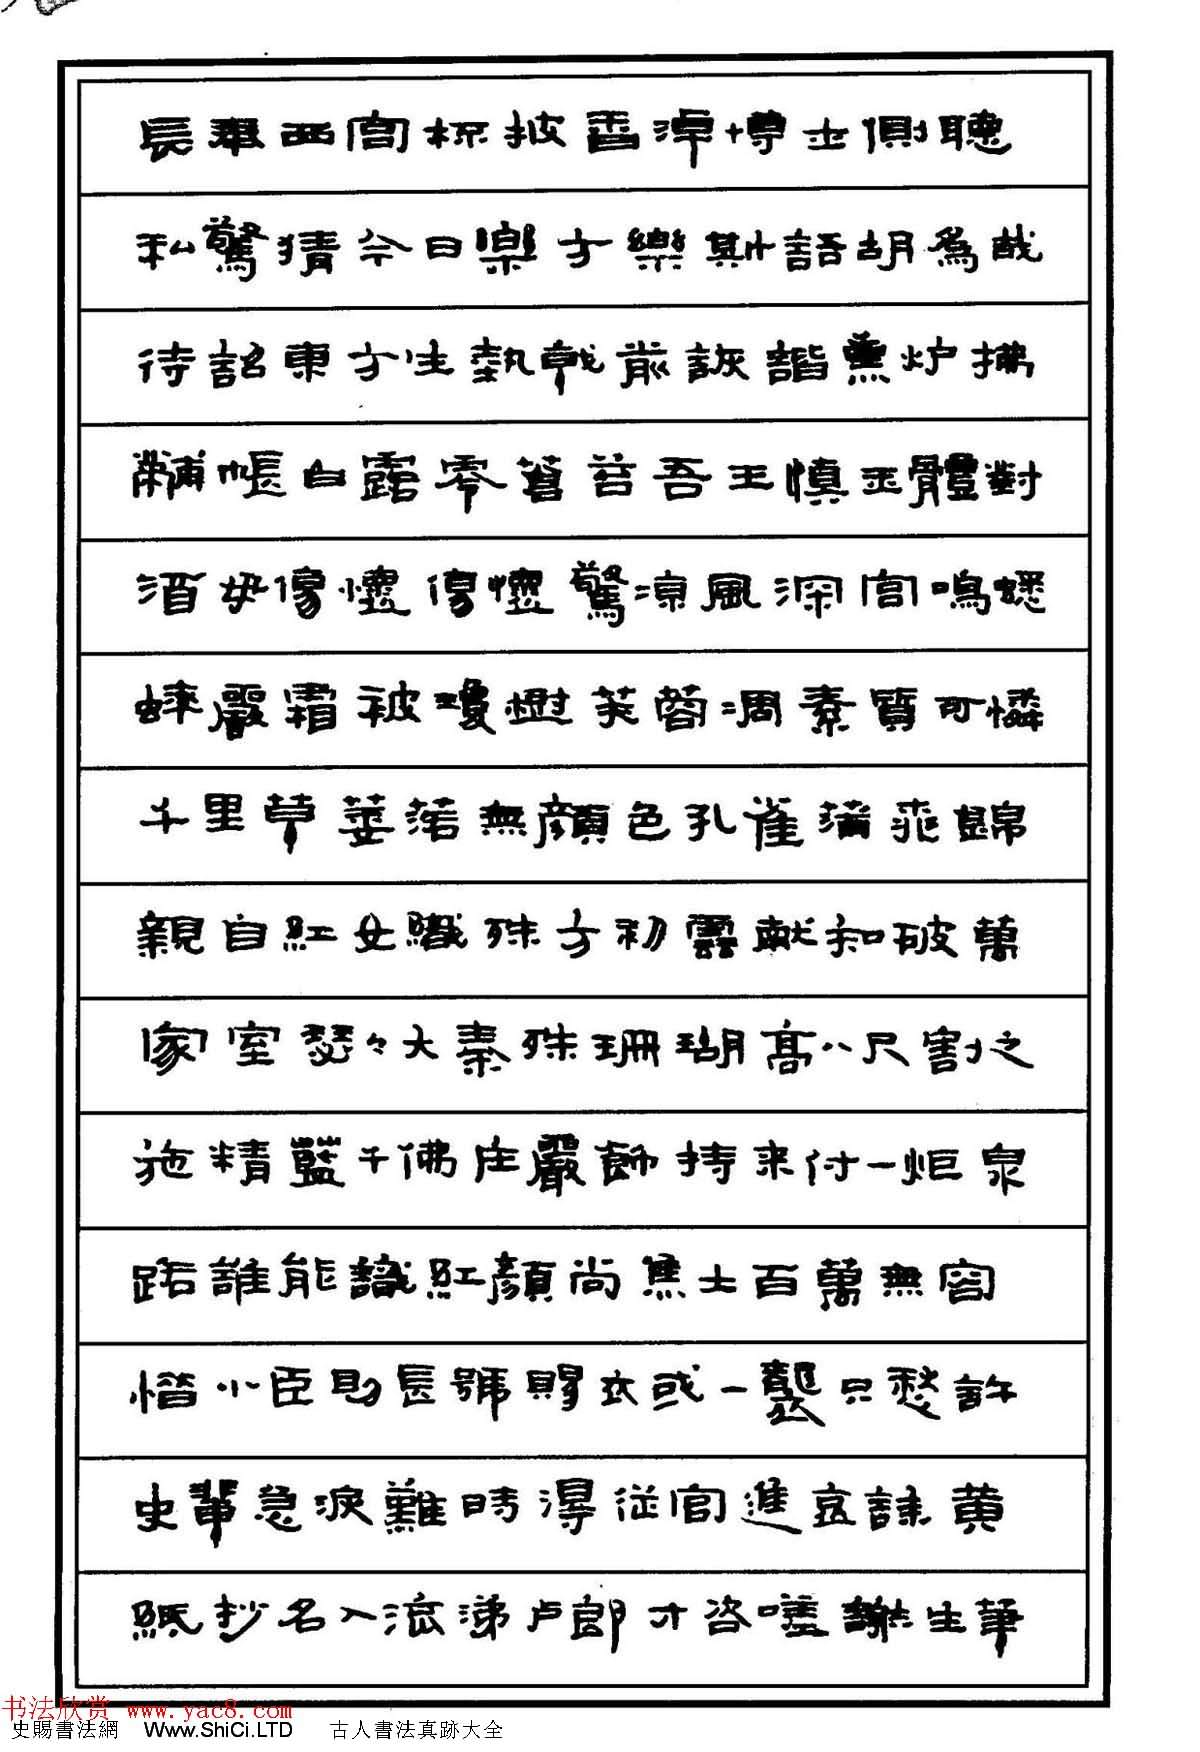 長畢西宮桮披香淖博士側聽
私驚猜今日樂方樂斯語胡為哉
待詔東方生執戟前詼諧熏炉拂
黼帳白露零蒼苔吾王慎玉體對
酒毋傷懷傷懷驚涼風深宮鳴蟋
蟀嚴霜被瓊樹芙蓉凋素質可憐
千里草萎落無顏色孔雀蒲桃錦
親自紅女織殊方初雲献知破萬
家室瑟々大秦殊珊瑚高八尺割之
施精藍千佛庄嚴飾持来付一炬泉
路誰能識紅顏尚焦土百萬無容
惜小臣助長號賜衣或一襲只愁許
史輩急淚難時得從官進哀誄黄
紙抄名入流涕卢郎才咨嗟謝生筆
书法欣赏 www.yac8.com
史賜書法網 Www.ShiCi.LTD 古人書法真跡大全